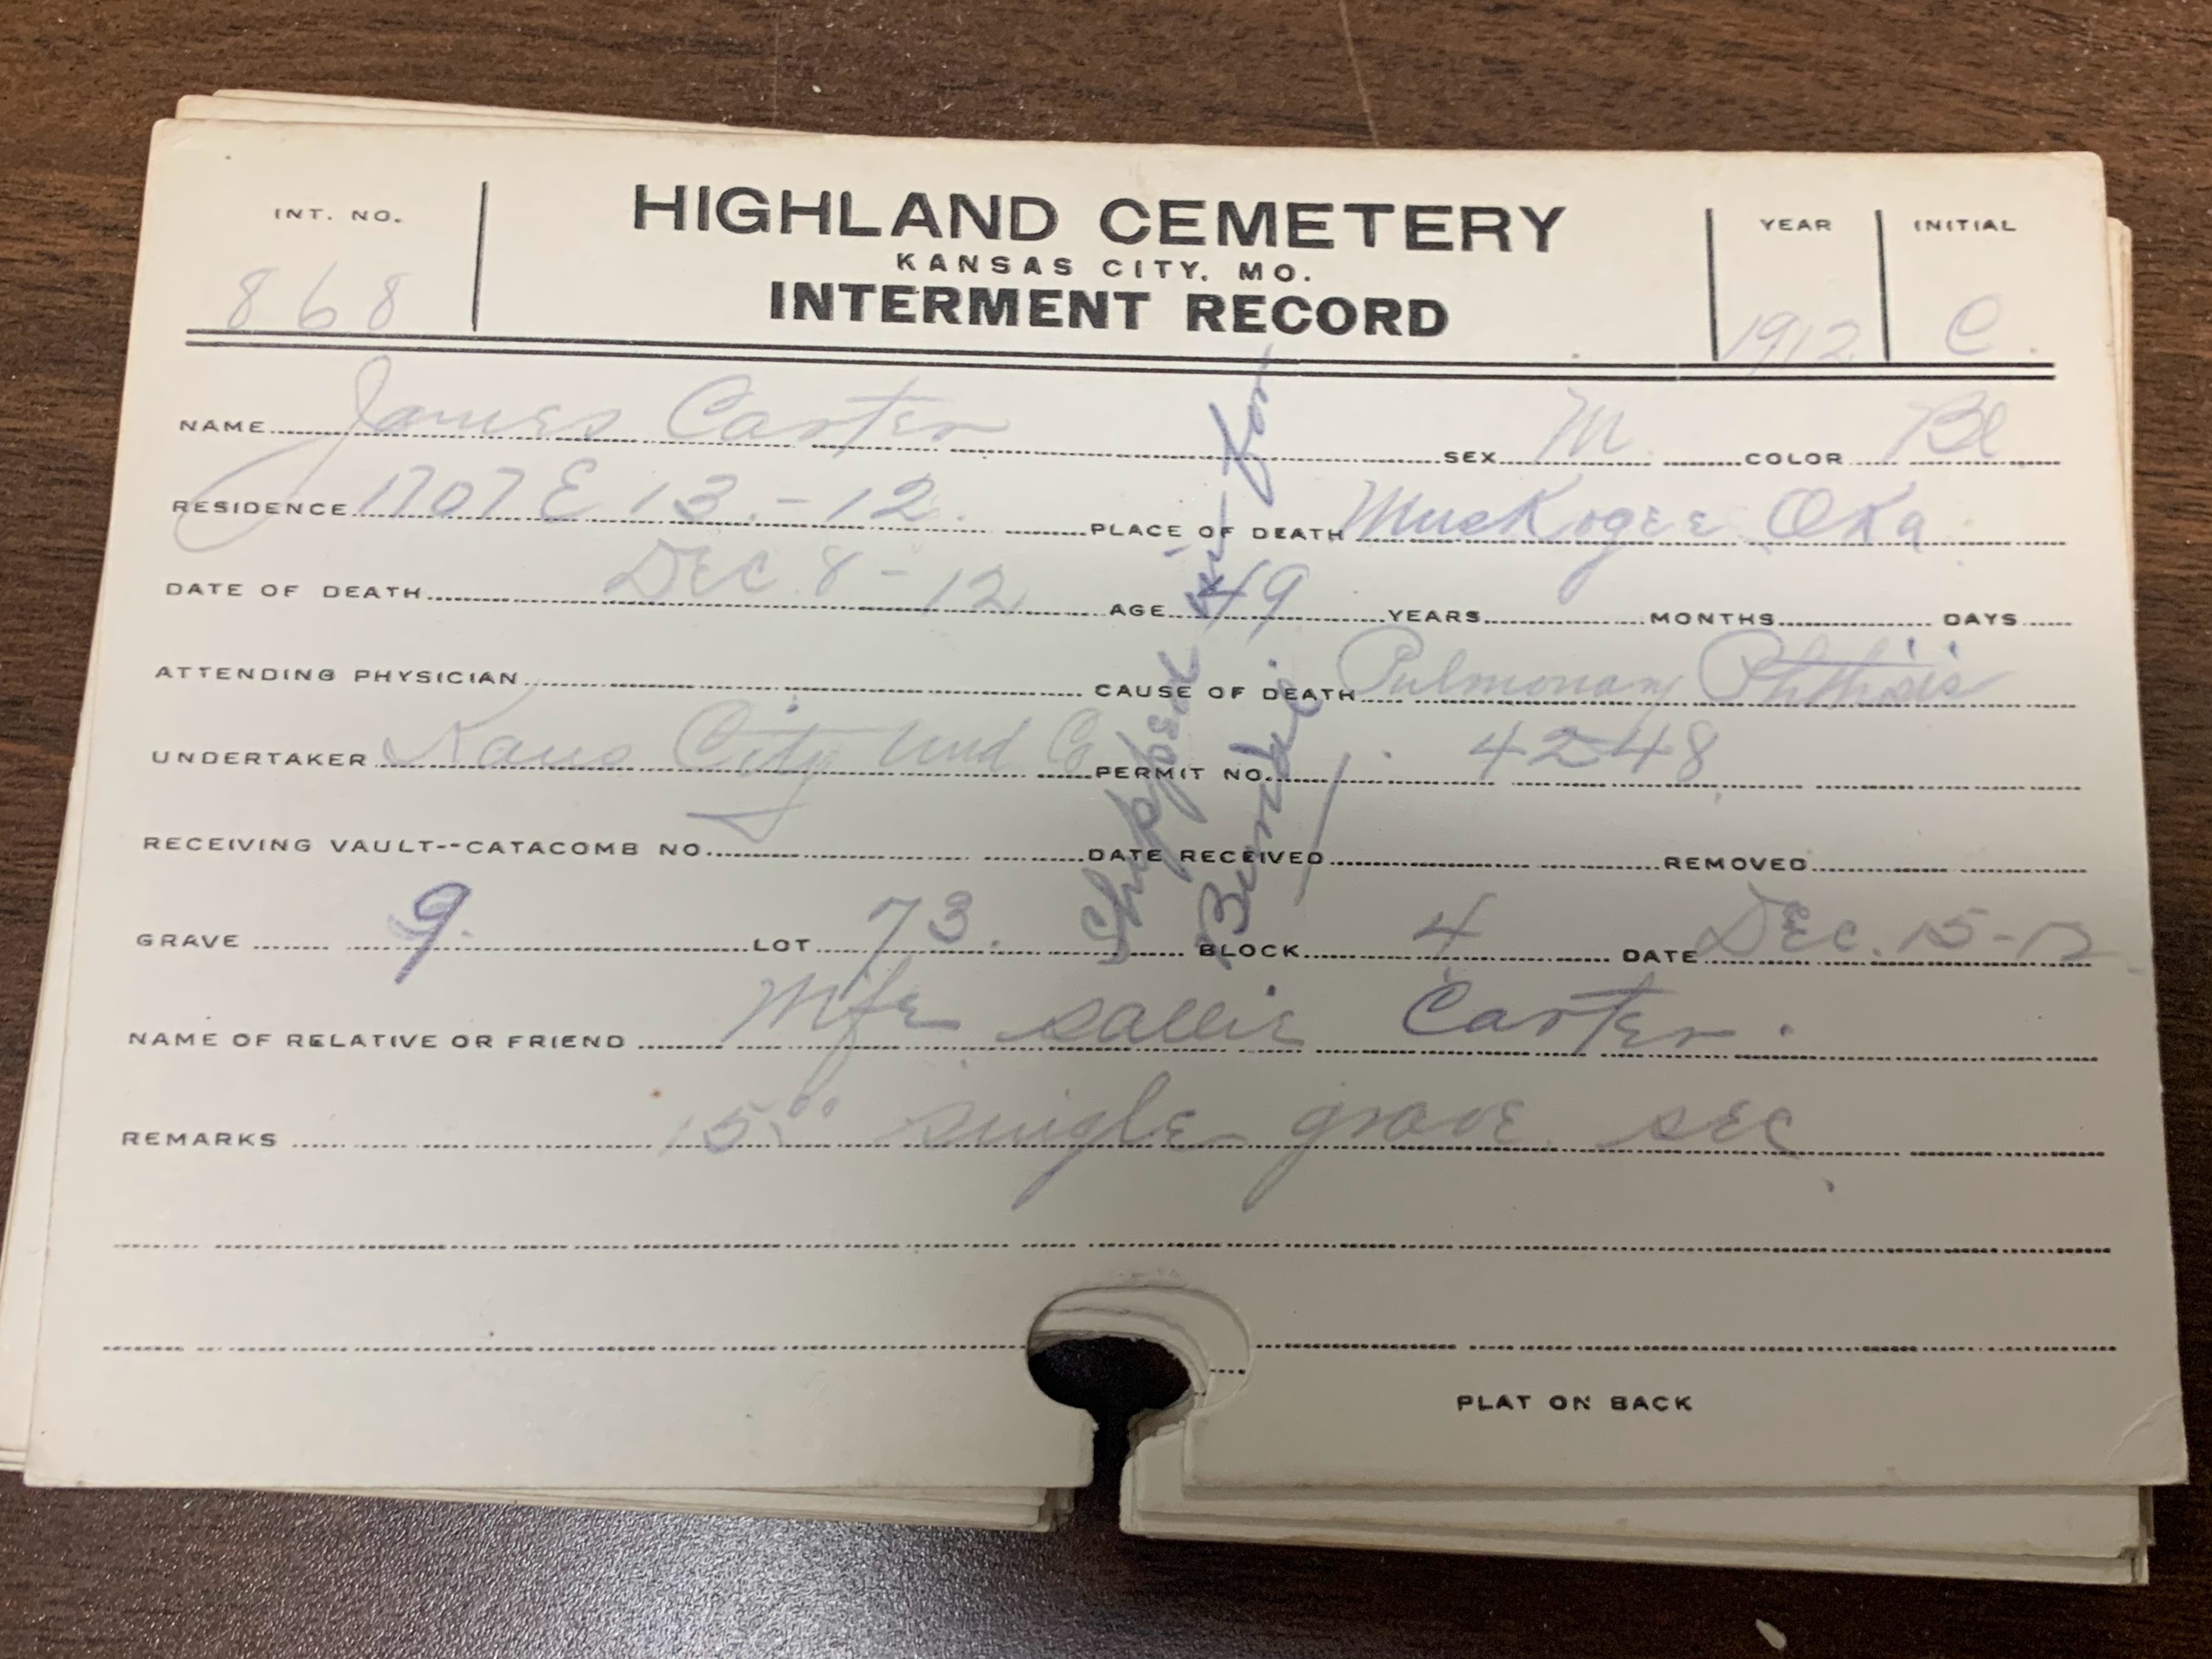 INT. NO. HIGHLAND CEMETERY YEAR INITIAL
KANSAS CITY, MO.
868 INTERMENT RECORD 1912 C.
NAME James Carter SEX M. COLOR Bl
RESIDENCE 1707 E 13.-12. PLACE OF DEATH MusKogee OKa.
DATE OF DEATH DEC 8-12 AGE 49 YEARS MONTHS DAYS
ATTENDING PHYSICIAN CAUSE OF DEATH Pulmonary Phthisis
UNDERTAKER Kans City Und Co PERMIT NO. 4248
RECEIVING VAULT--CATACOMB NO. DATE RECEIVED REMOVED
GRAVE 9. LOT 73. BLOCK 4 DATE DEC. 15-12
NAME OF RELATIVE OR FRIEND Wife Sallie Carter.
REMARKS 15.00 single grave sec
Shipped in for
Burial.
PLAT ON BACK